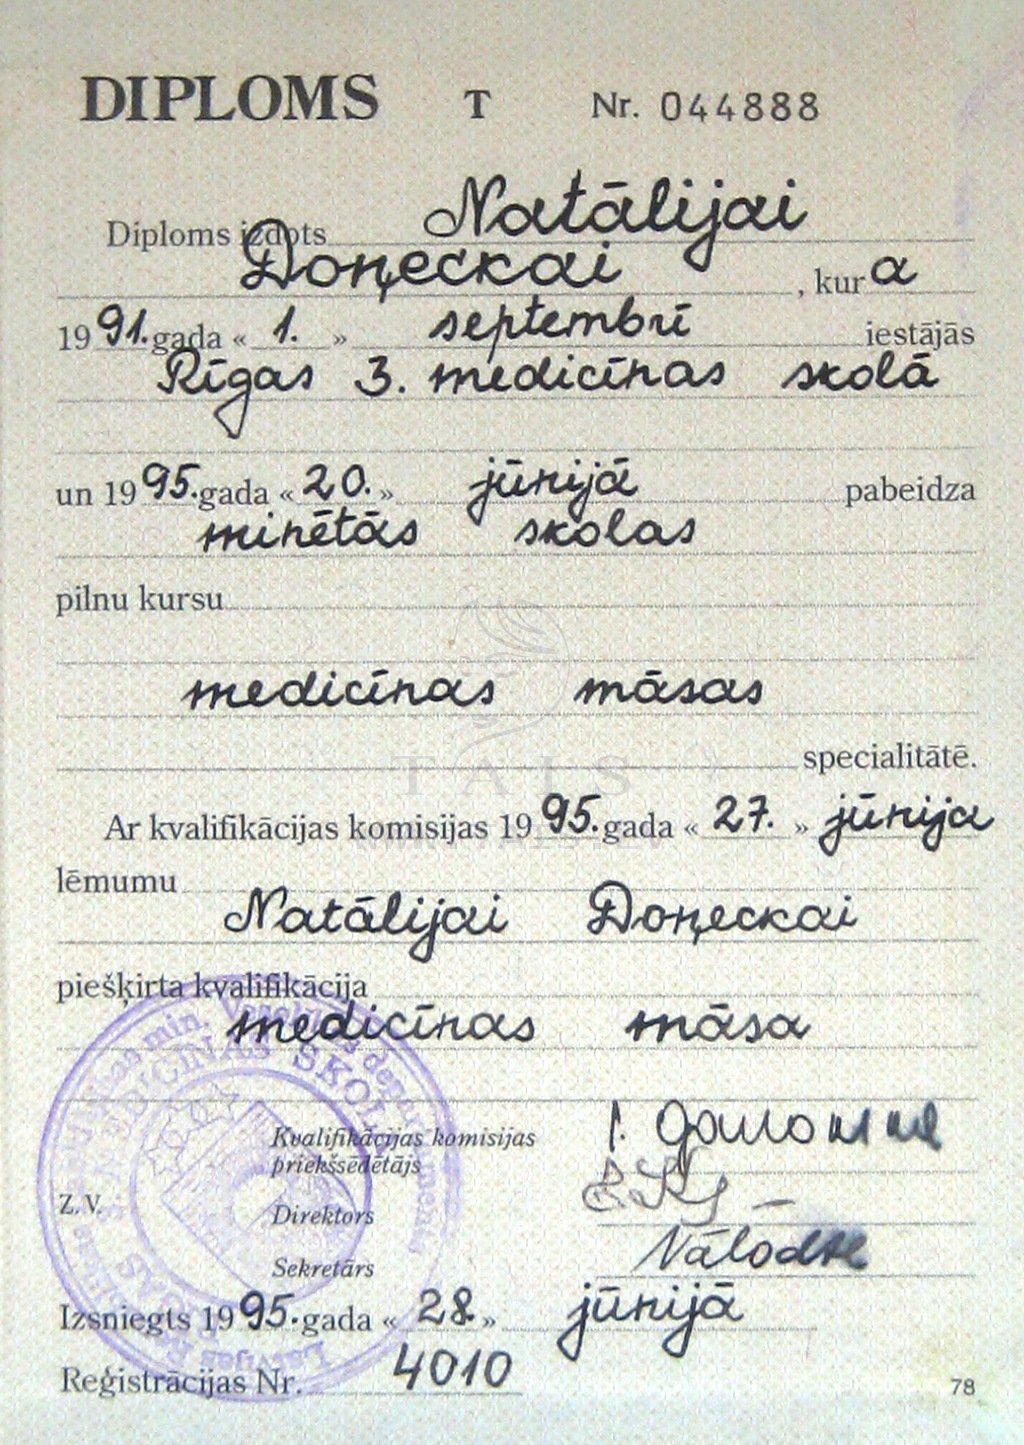 DIPLOMS T Nr. 044888
Diploms izdots Natālijai
Doņeckai, kura
1991. gada « 1. » septembrī iestājās
Rīgas 3. medicīnas skolā
un 1995. gada « 20. » jūnijā pabeidza
minētās skolas
pilnu kursu
medicīnas māsas
specialitātē.
TAIS
Ar kvalifikācijas komisijas 1995. gada « 27. » jūnija
www.TAIS.LV
lēmumu
Natālijai Doņeckai
piešķirta kvalifikācija
medicīnas māsa
Kvalifikācijas komisijas
priekšsēdētājs
Z.V.
Direktors
Sekretārs
Izsniegts 1995. gada « 28. » jūnijā
Reģistrācijas Nr. 4010
78